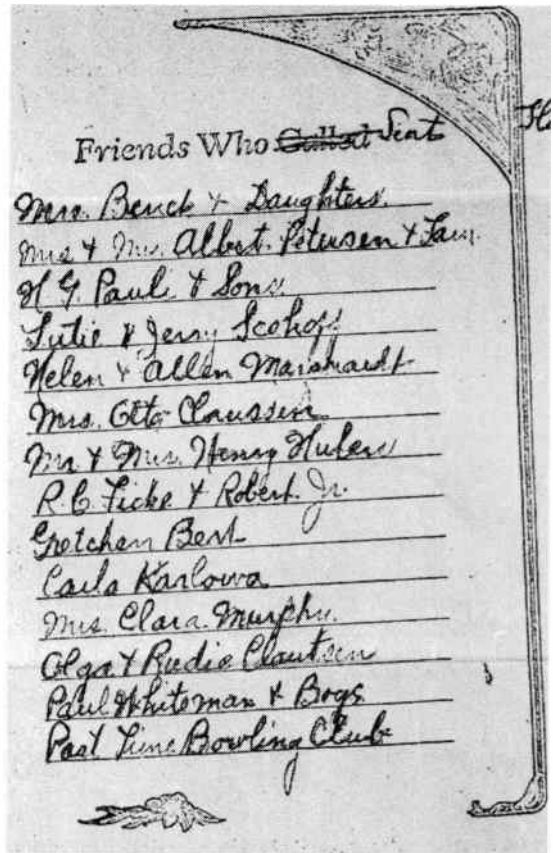 Friends Who Called Sent
Mrs. Benck & Daughters.
Mrs & Mr. Albert. Petersen & Fam.
H G. Pauli & Sons
Tutie & Jerry
Helen & Allen
Mrs. Otto Claussen
Mr & Mrs. Henry
R. C. Ficke & Robert. Jr.
Gretchen Bert
Carla Karlowa
Mrs. Clara. Murphy.
Olga & Rudie. Clautsen
Paul Whiteman & Boys
Past Time Bowling Club